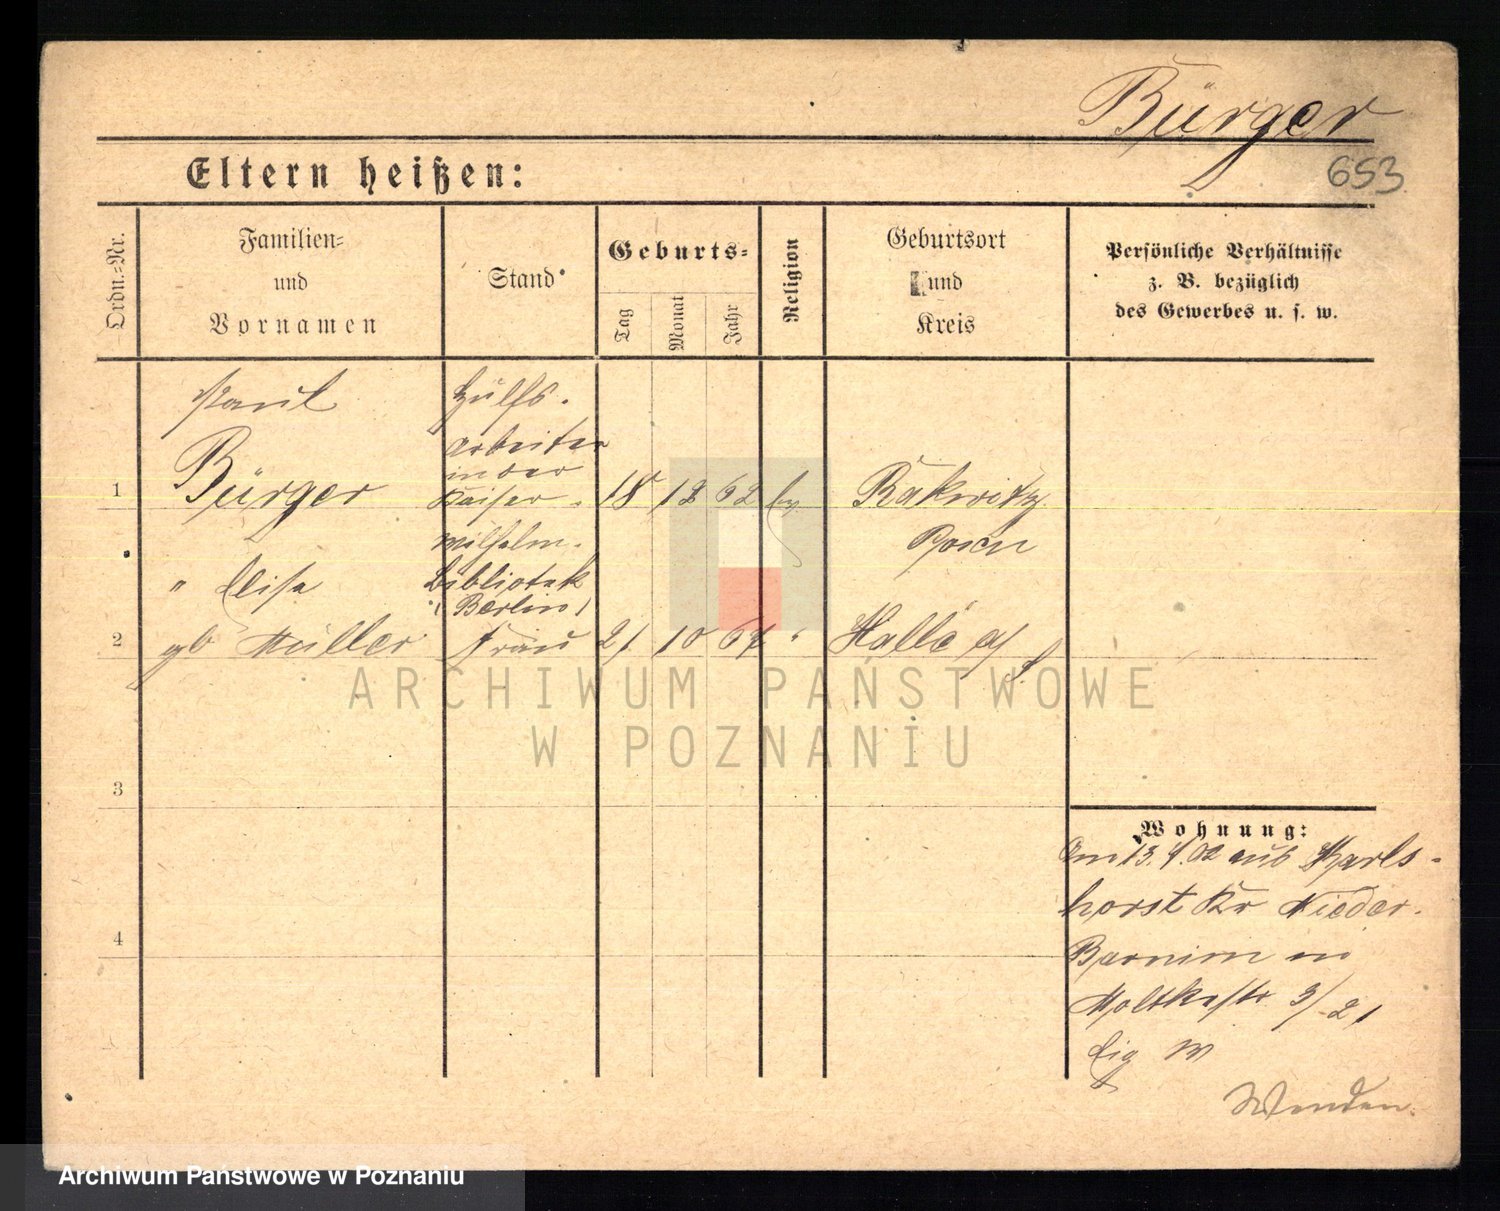 Bürger
653
Eltern heißen:
Ordn.=Nr.
Familien=
und
Vornamen
Stand
Geburts=
Tag
Monat
Jahr
Religion
Geburtsort
und
Kreis
Persönliche Verhältnisse
z. B. bezüglich
des Gewerbes u. s. w.
1
Paul
Bürger
Hülfs-
arbeiter
in der
Kaiser-
Wilhelm-
Bibliotek
(Berlin)
18 12 62 Ev
Rakwitz
Posen
2
" Elise
gb Müller
Frau
21 10 67 "
Halle a/S
3
4
Wohnung:
Am 13.4.02 aus Karls-
horst Kr Nieder-
Barnim in
Moltkestr 3/21
Eig W
Wenden.
ARCHIWUM PAŃSTWOWE
W POZNANIU
Archiwum Państwowe w Poznaniu